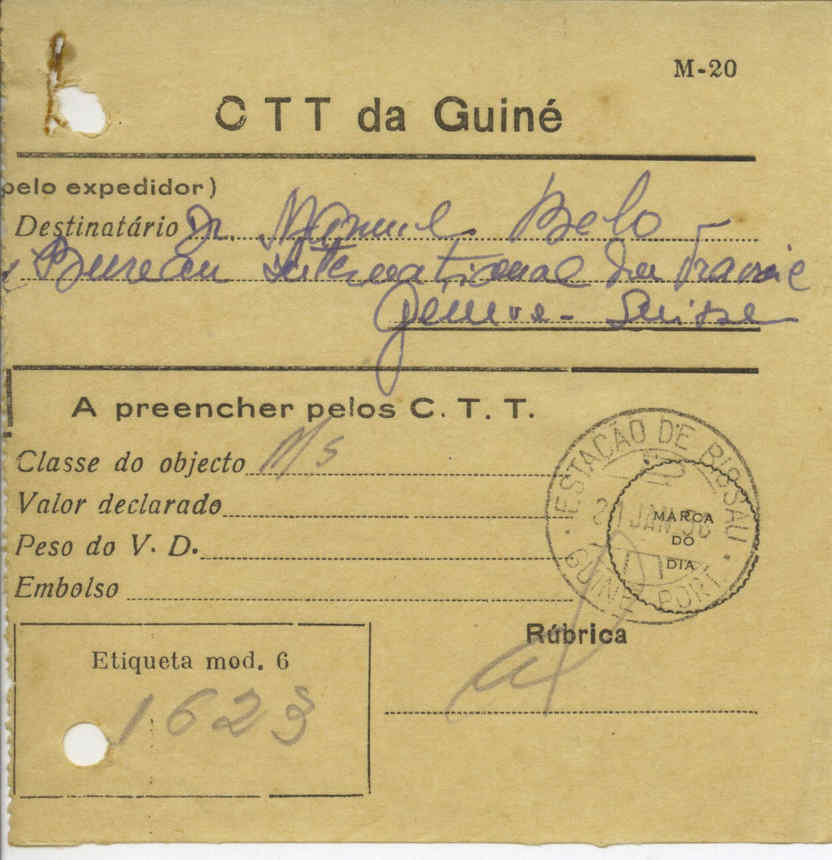 M-20
CTT da Guiné
pelo expedidor)
Destinatário Dr. Manuel Belo
Bureau International du Travaie
Genève - Suisse
A preencher pelos C. T. T.
Classe do objecto
Valor declarado
Peso do V. D.
Embolso
ESTAÇÃO DE BISSAU
21 JAN.
GUINÉ PORT.
MARCA
DO
DIA
Rúbrica
Etiqueta mod. 6
1623